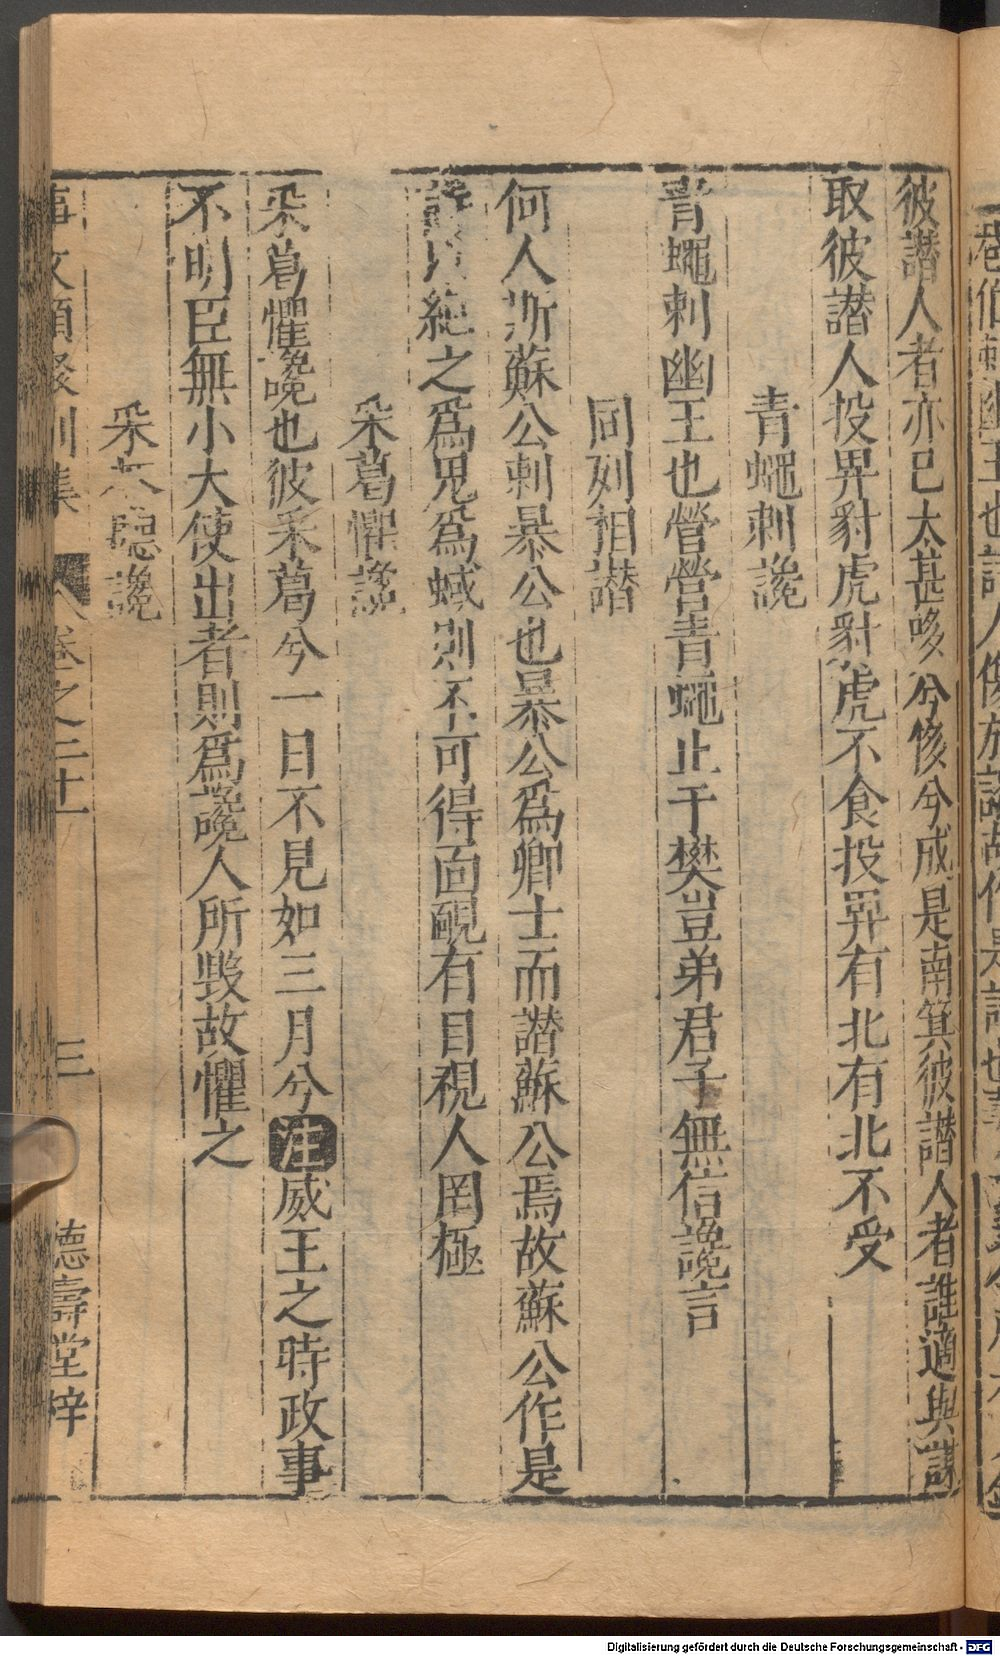 巷伯刺幽王也詩人傷於讒故作是詩也
彼譖人者亦巳太甚哆兮侈兮成是南箕彼譖人者誰適與謀
取彼譖人投畀豺虎豺虎不食投畀有北有北不受
青蠅刺讒
青蠅刺幽王也營營青蠅止于樊豈弟君子無信讒言
同列相譖
何人斯蘇公刺暴公也暴公爲卿士而譖蘇公焉故蘇公作是
詩以絕之爲鬼爲蜮則不可得面靦有目視人罔極
采葛懼讒
采葛懼讒也彼采葛兮一日不見如三月兮注威王之時政事
不明臣無小大使出者則爲讒人所毀故懼之
采苓聽讒
事文類聚別集 卷之二十 三 德壽堂梓
Digitalisierung gefördert durch die Deutsche Forschungsgemeinschaft - DFG